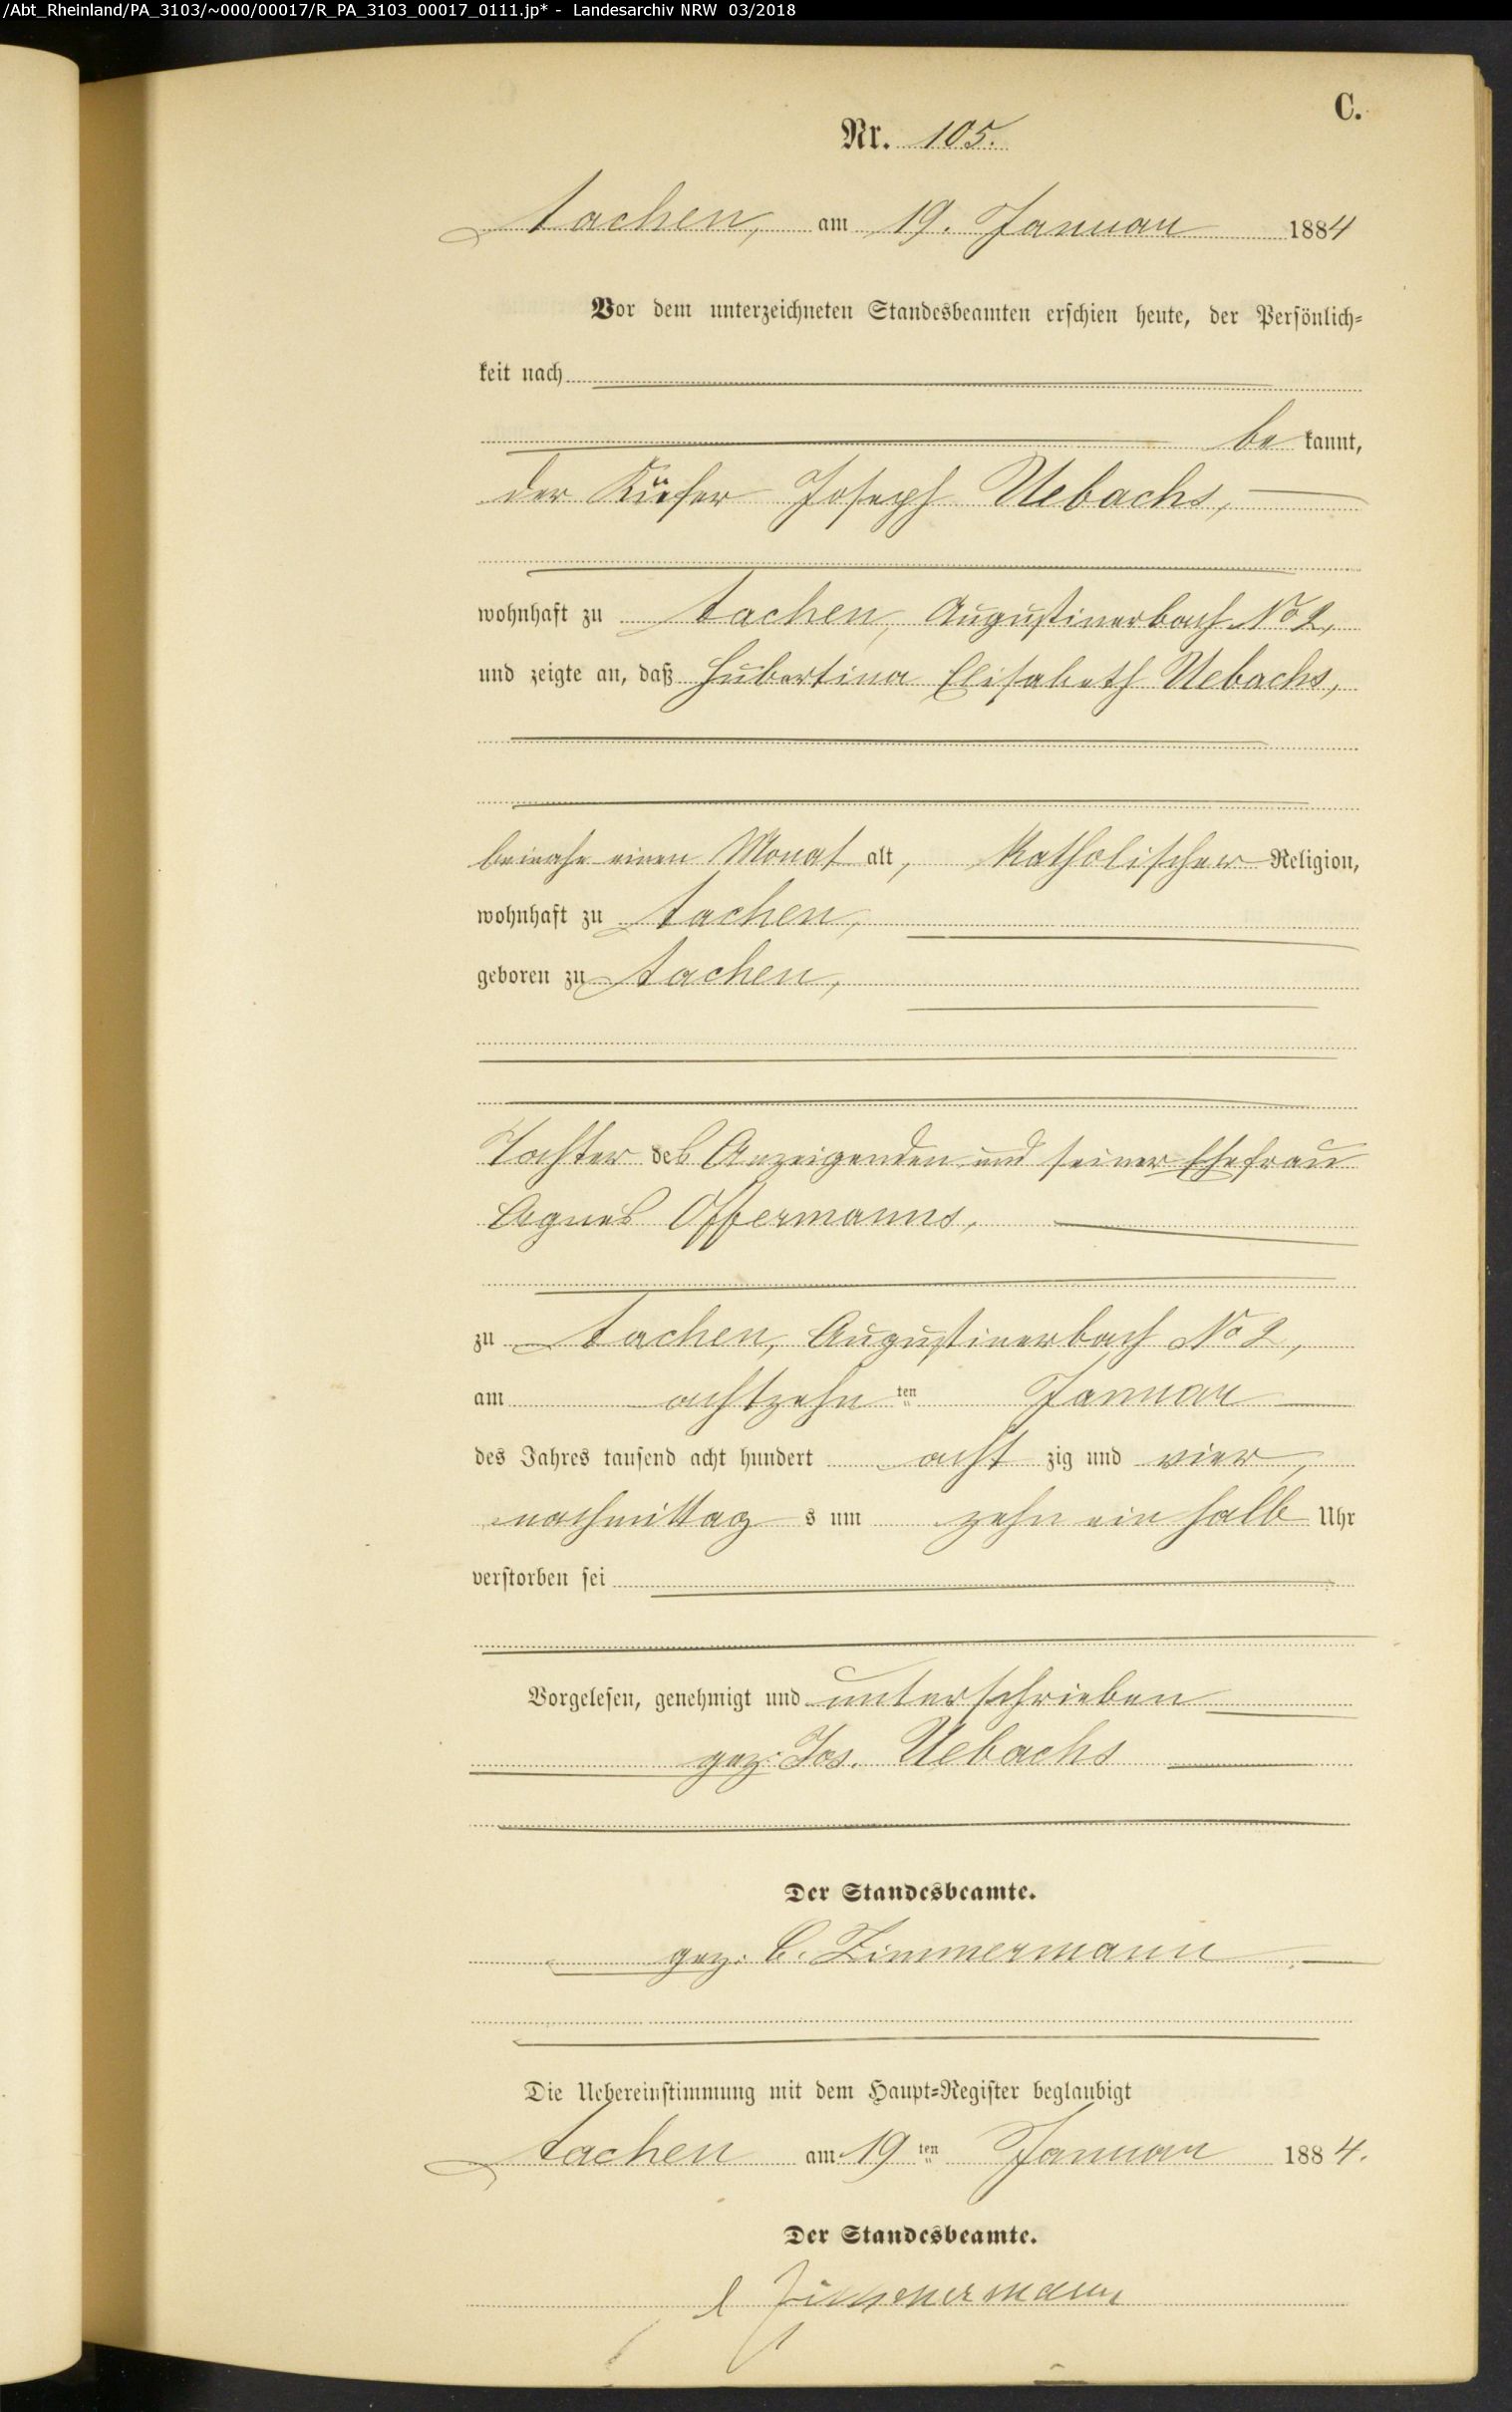 /Abt_Rheinland/PA_3103/~000/00017/R_PA_3103_00017_0111.jp* - Landesarchiv NRW 03/2018
C.
Nr. 105.
Aachen, am 19. Januar 1884
Vor dem unterzeichneten Standesbeamten erschien heute, der Persönlich-
keit nach
be kannt,
der Küfer Joseph Uebachs,
wohnhaft zu Aachen, Augustinerbach No 2,
und zeigte an, daß Hubertina Elisabeth Uebachs,
beinahe einen Monat alt, katholischer Religion,
wohnhaft zu Aachen,
geboren zu Aachen,
Tochter des Anzeigenden und seiner Ehefrau
Agnes Offermanns,
zu Aachen, Augustinerbach No 2,
am achtzehn ten Januar
des Jahres tausend acht hundert acht zig und vier,
nachmittag s um zehn ein halb Uhr
verstorben sei
Vorgelesen, genehmigt und unterschrieben
gez: Jos. Uebachs
Der Standesbeamte.
gez: C. Zimmermann
Die Uebereinstimmung mit dem Haupt-Register beglaubigt
Aachen am 19 ten Januar 1884.
Der Standesbeamte.
C Zimmermann